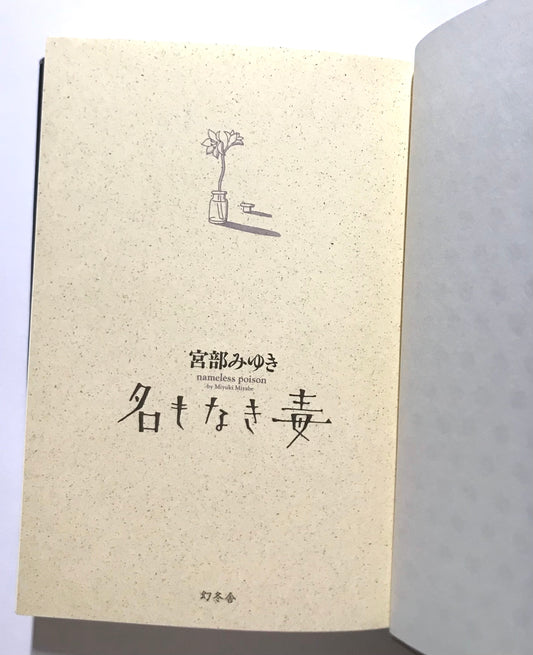 宮部みゆき
nameless poison
by Miyuki Miyabe
名もなき毒
幻冬舎